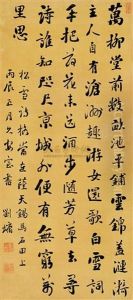 萬柳堂前數畝池平鋪雲錦蓋漣漪
主人自有滄洲趣遊女還歌白雪詞
手把荷花來酒步隨芳草去尋
詩誰知咫尺京城外便有無窮萬
里思
松雪詩天錫馬石田上
丙辰五月書 劉墉